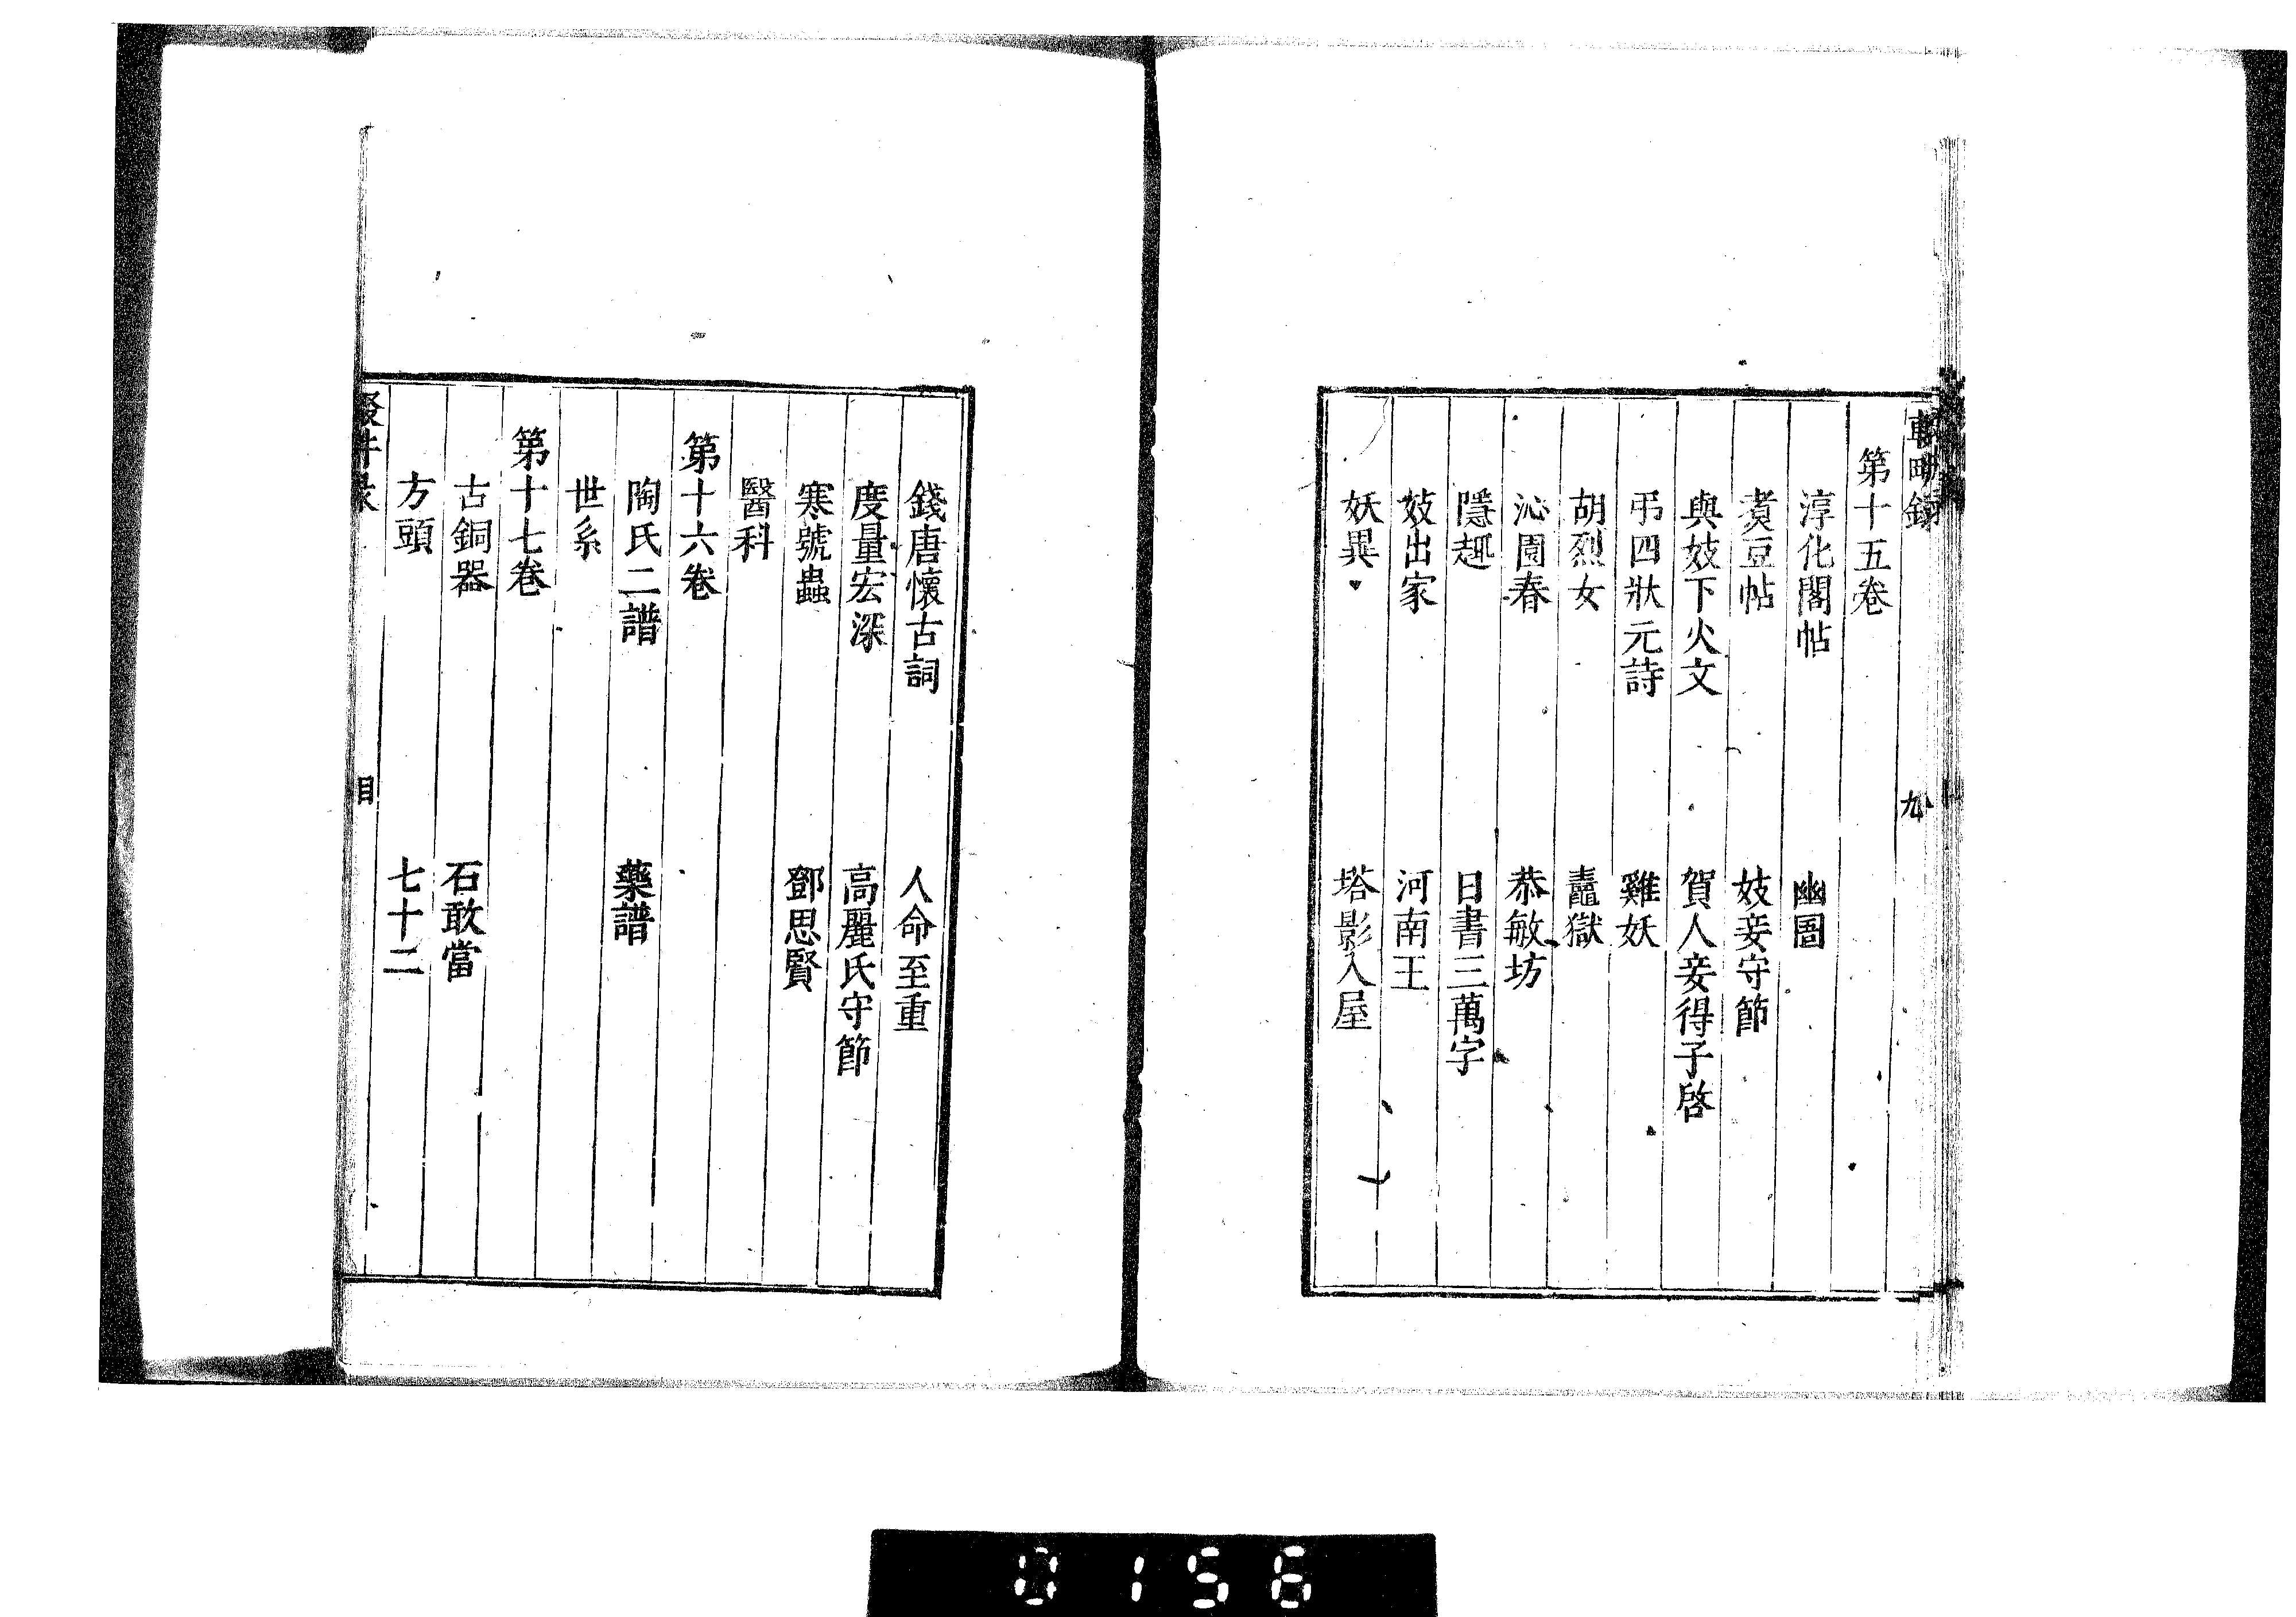 第十五卷
淳化閣帖 幽圄
煑豆帖 妓妾守節
與妓下火文 賀人妾得子啓
弔四狀元詩 雞妖
胡烈女 蠱獄
沁園春 恭敏坊
隱趣 日書三萬字
妓出家 河南王
妖異 塔影入屋
錢唐懷古詞 人命至重
度量宏深 高麗氏守節
寒號蟲 鄧思賢
醫科
第十六卷
陶氏二譜 藥譜
世系
第十七卷
古銅器 石敢當
方頭 七十二
目
0156